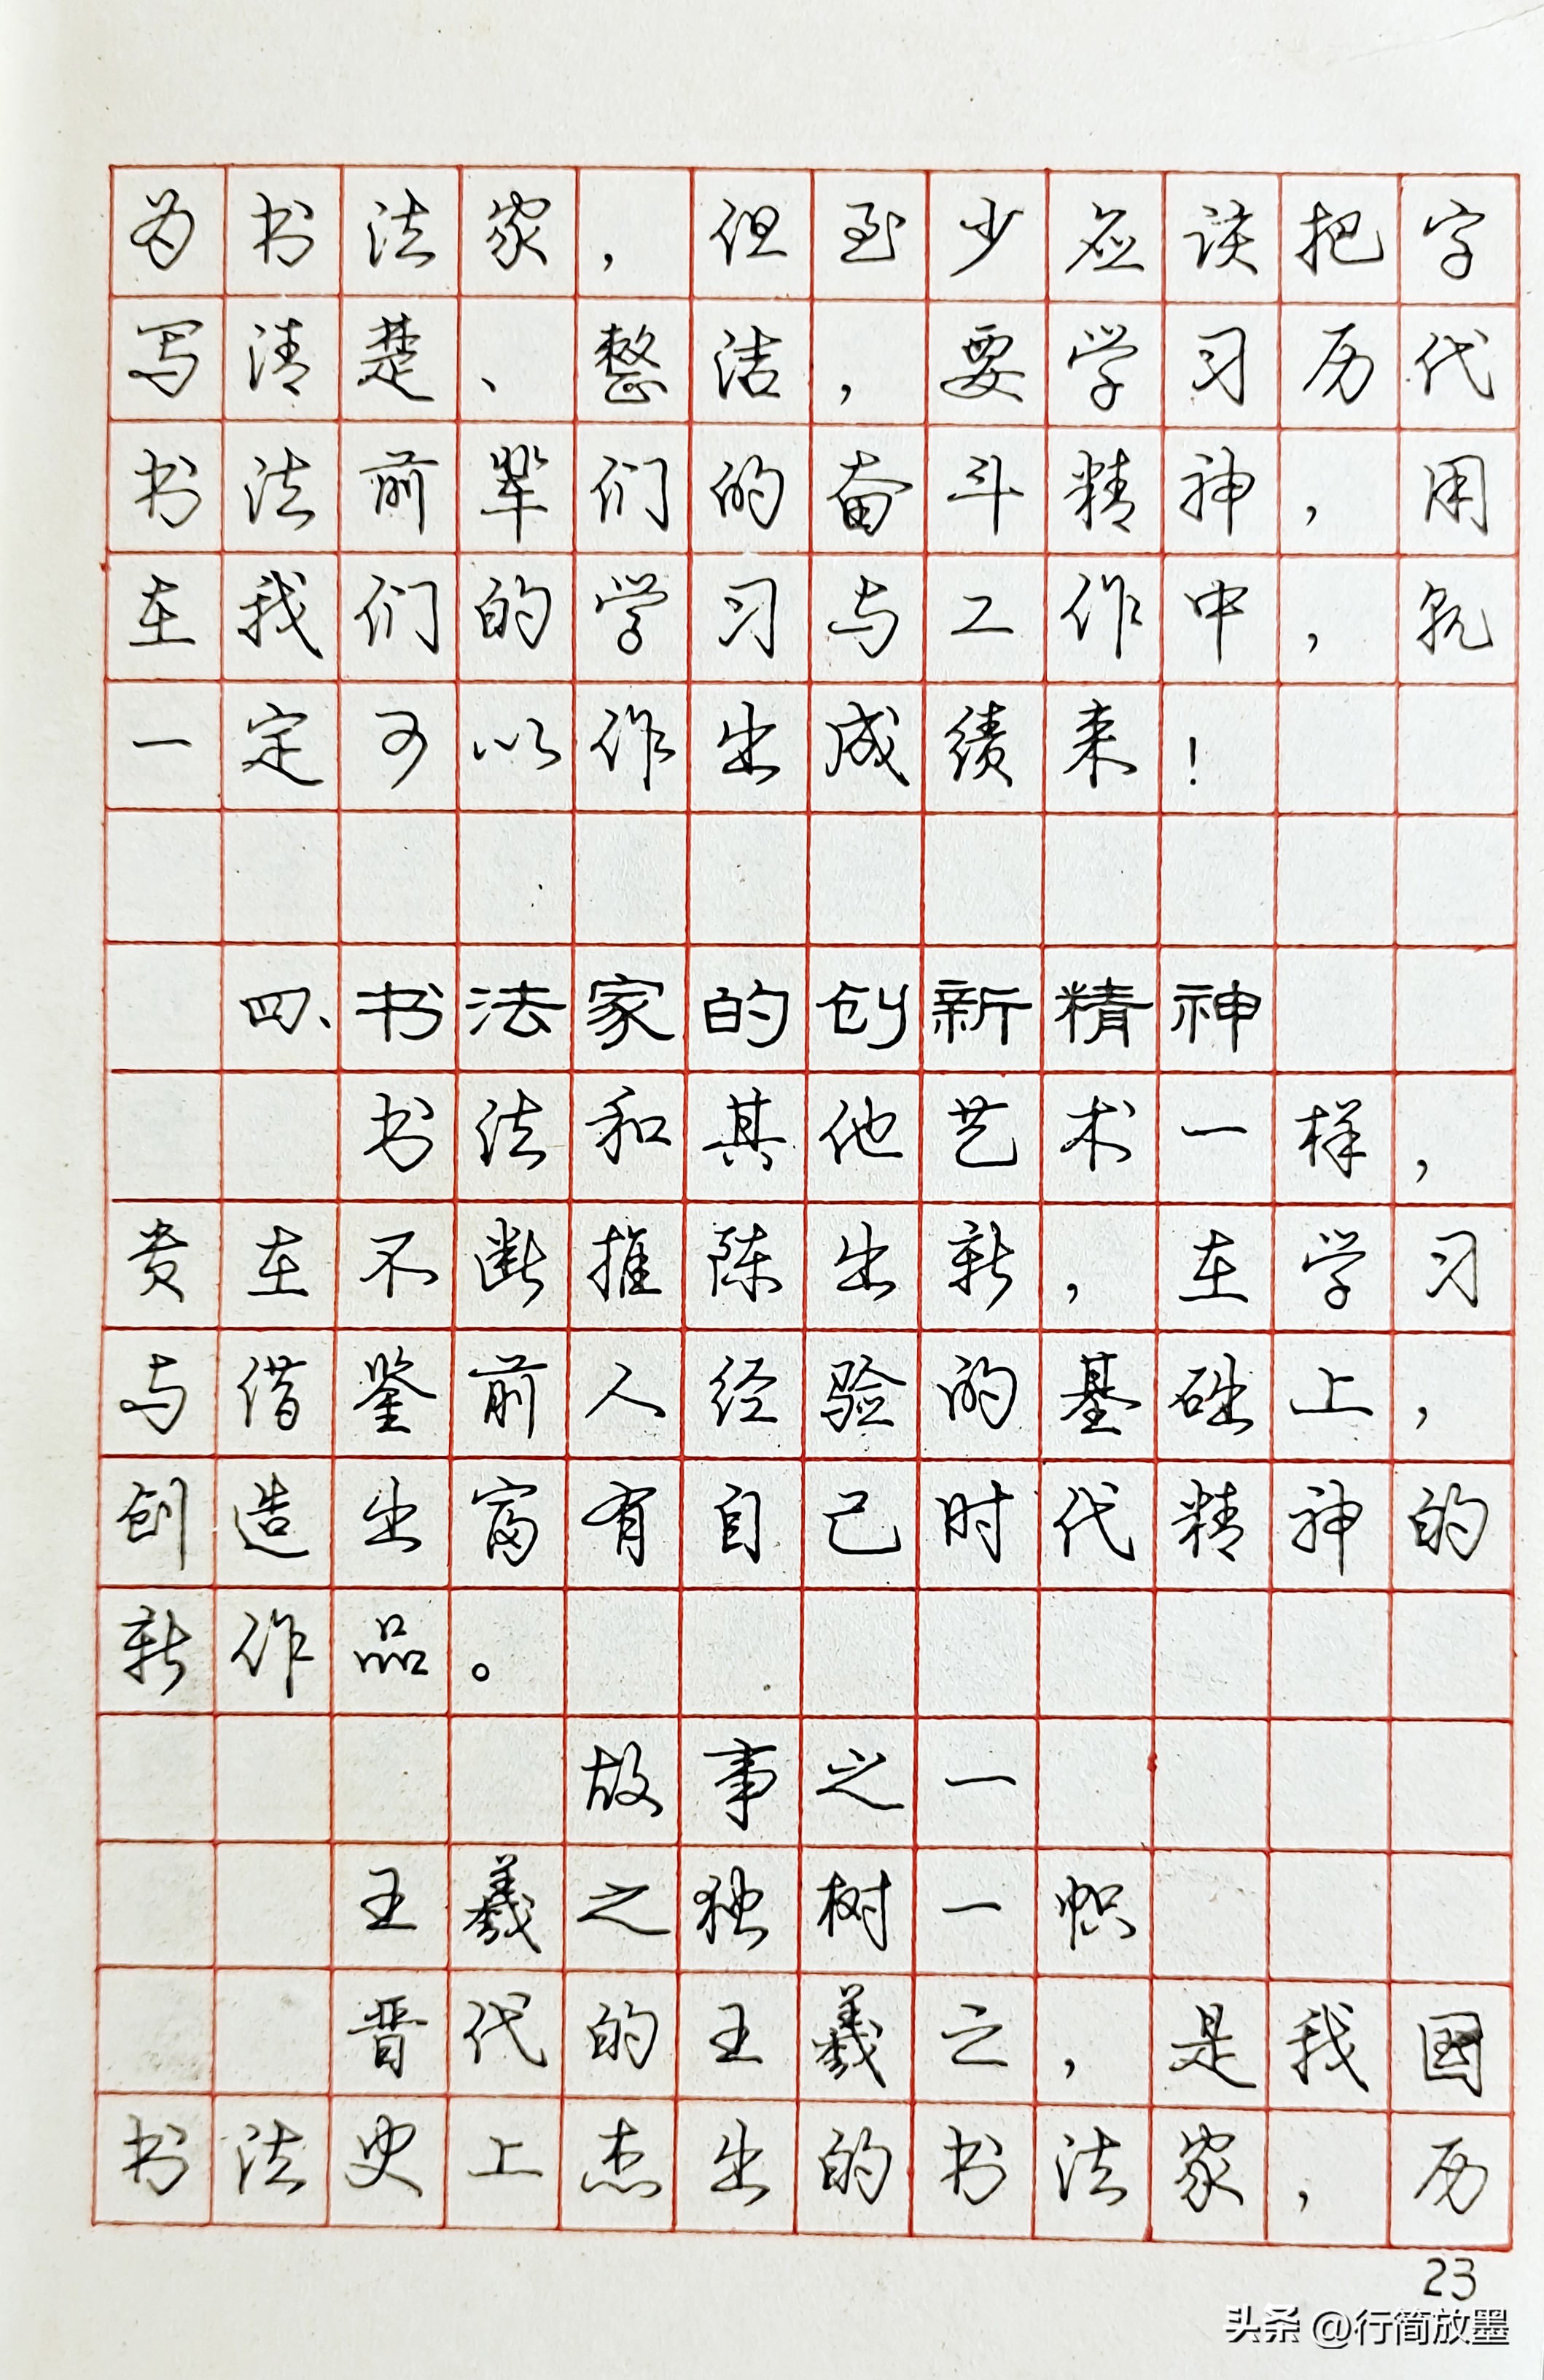 为书法家，但至少应该把字
写清楚、整洁，要学习历代
书法前辈们的奋斗精神，用
在我们的学习与工作中，就
一定可以作出成绩来！
四、书法家的创新精神
书法和其他艺术一样，
贵在不断推陈出新，在学习
与借鉴前人经验的基础上，
创造出富有自己时代精神的
新作品。
故事之一
王羲之独树一帜
晋代的王羲之，是我国
书法史上杰出的书法家，历
23
头条 @行简放墨